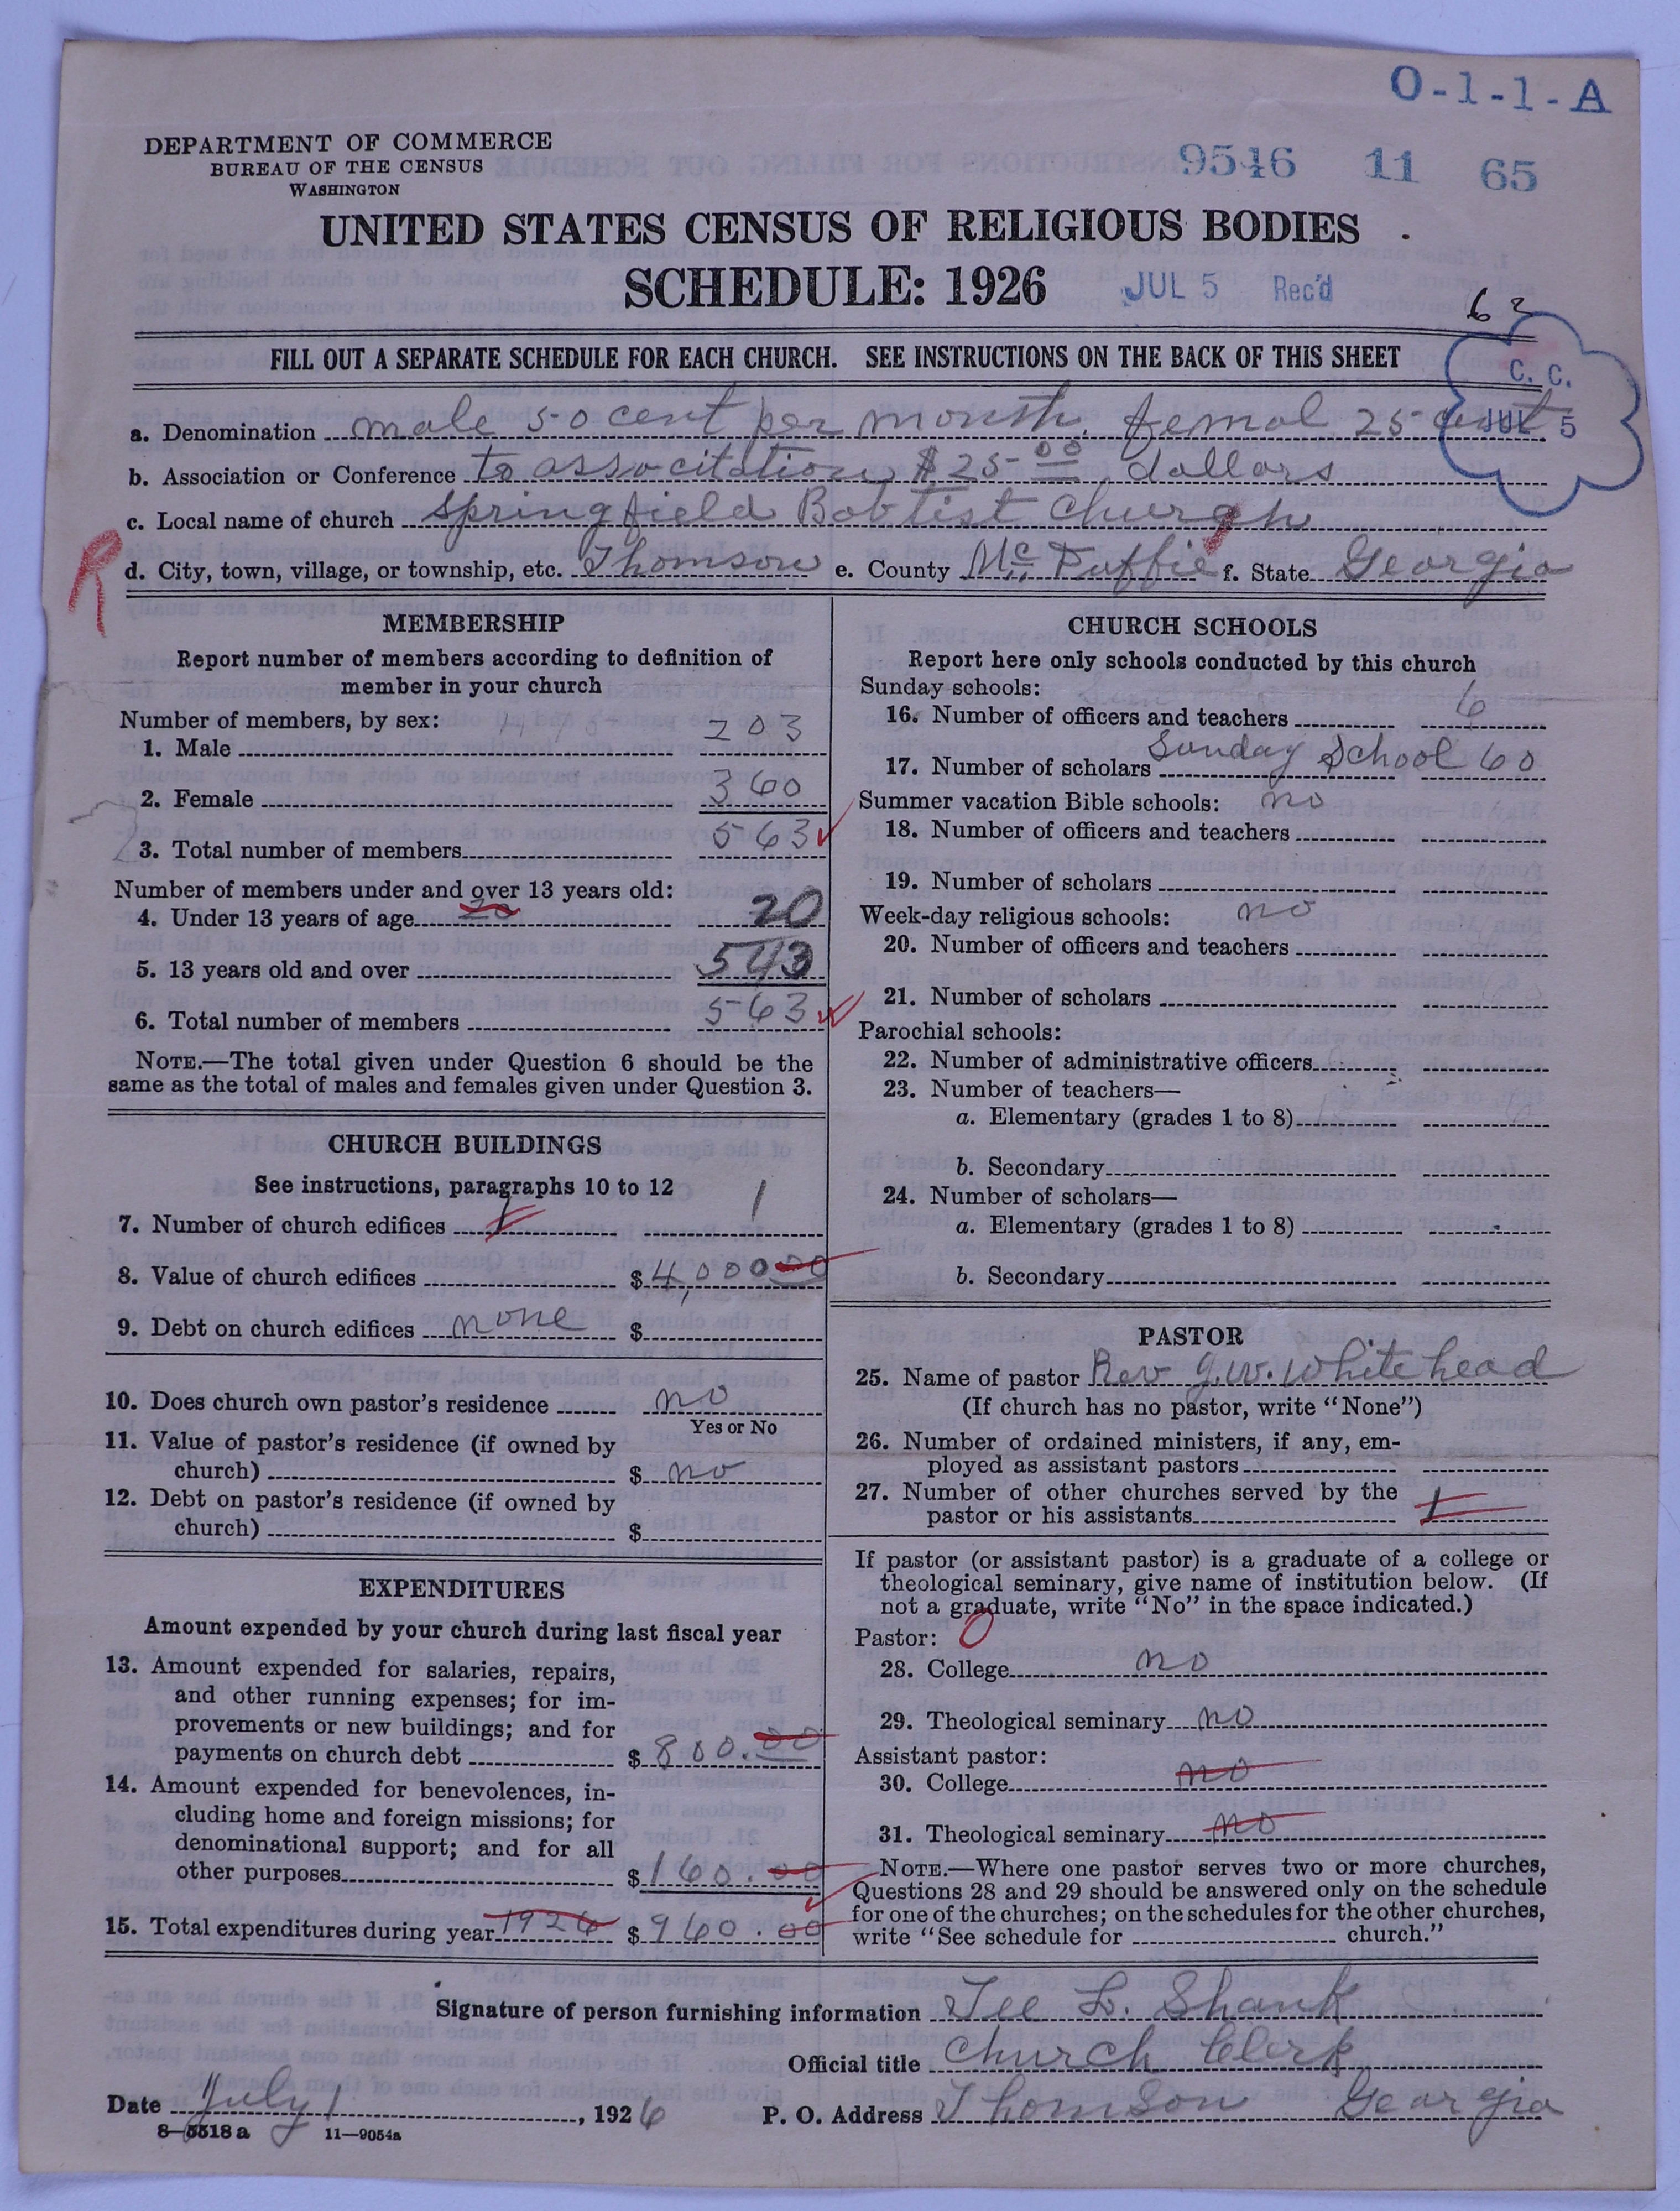 O-1-1-A
DEPARTMENT OF COMMERCE
BUREAU OF THE CENSUS
WASHINGTON
9546 11 65
UNITED STATES CENSUS OF RELIGIOUS BODIES
SCHEDULE: 1926
JUL 5 Rec'd
63
FILL OUT A SEPARATE SCHEDULE FOR EACH CHURCH. SEE INSTRUCTIONS ON THE BACK OF THIS SHEET
C. C.
JUL 5
a. Denomination male 50 cent per month. femal 25 cent
b. Association or Conference to associtation $25.00 dollars
c. Local name of church Springfield Babtist Church
R
d. City, town, village, or township, etc. Thomson e. County McDuffie f. State Georgia
MEMBERSHIP
Report number of members according to definition of
member in your church
Number of members, by sex:
1. Male 203
2. Female 360
3. Total number of members 563
Number of members under and over 13 years old:
4. Under 13 years of age 20 20
5. 13 years old and over 543
6. Total number of members 563
NOTE.—The total given under Question 6 should be the
same as the total of males and females given under Question 3.
CHURCH BUILDINGS
See instructions, paragraphs 10 to 12
7. Number of church edifices 1 1
8. Value of church edifices $4,000 00
9. Debt on church edifices none $
10. Does church own pastor's residence no
Yes or No
11. Value of pastor's residence (if owned by
church) $ no
12. Debt on pastor's residence (if owned by
church) $
EXPENDITURES
Amount expended by your church during last fiscal year
13. Amount expended for salaries, repairs,
and other running expenses; for im-
provements or new buildings; and for
payments on church debt $ 800.00
14. Amount expended for benevolences, in-
cluding home and foreign missions; for
denominational support; and for all
other purposes $160.00
15. Total expenditures during year 1926 $960.00
CHURCH SCHOOLS
Report here only schools conducted by this church
Sunday schools:
16. Number of officers and teachers 6
17. Number of scholars Sunday School 60
Summer vacation Bible schools: no
18. Number of officers and teachers
19. Number of scholars
Week-day religious schools: no
20. Number of officers and teachers
21. Number of scholars
Parochial schools:
22. Number of administrative officers
23. Number of teachers—
a. Elementary (grades 1 to 8)
b. Secondary
24. Number of scholars—
a. Elementary (grades 1 to 8)
b. Secondary
PASTOR
25. Name of pastor Rev J.W. Whitehead
(If church has no pastor, write "None")
26. Number of ordained ministers, if any, em-
ployed as assistant pastors
27. Number of other churches served by the
pastor or his assistants 1
If pastor (or assistant pastor) is a graduate of a college or
theological seminary, give name of institution below. (If
not a graduate, write "No" in the space indicated.)
Pastor: 0
28. College no
29. Theological seminary no
Assistant pastor:
30. College no
31. Theological seminary no
NOTE.—Where one pastor serves two or more churches,
Questions 28 and 29 should be answered only on the schedule
for one of the churches; on the schedules for the other churches,
write "See schedule for church."
Signature of person furnishing information Tee L. Shank
Official title Church Clerk
Date July 1, 1926 P. O. Address Thomson Georgia
8—5518 a 11—9054a